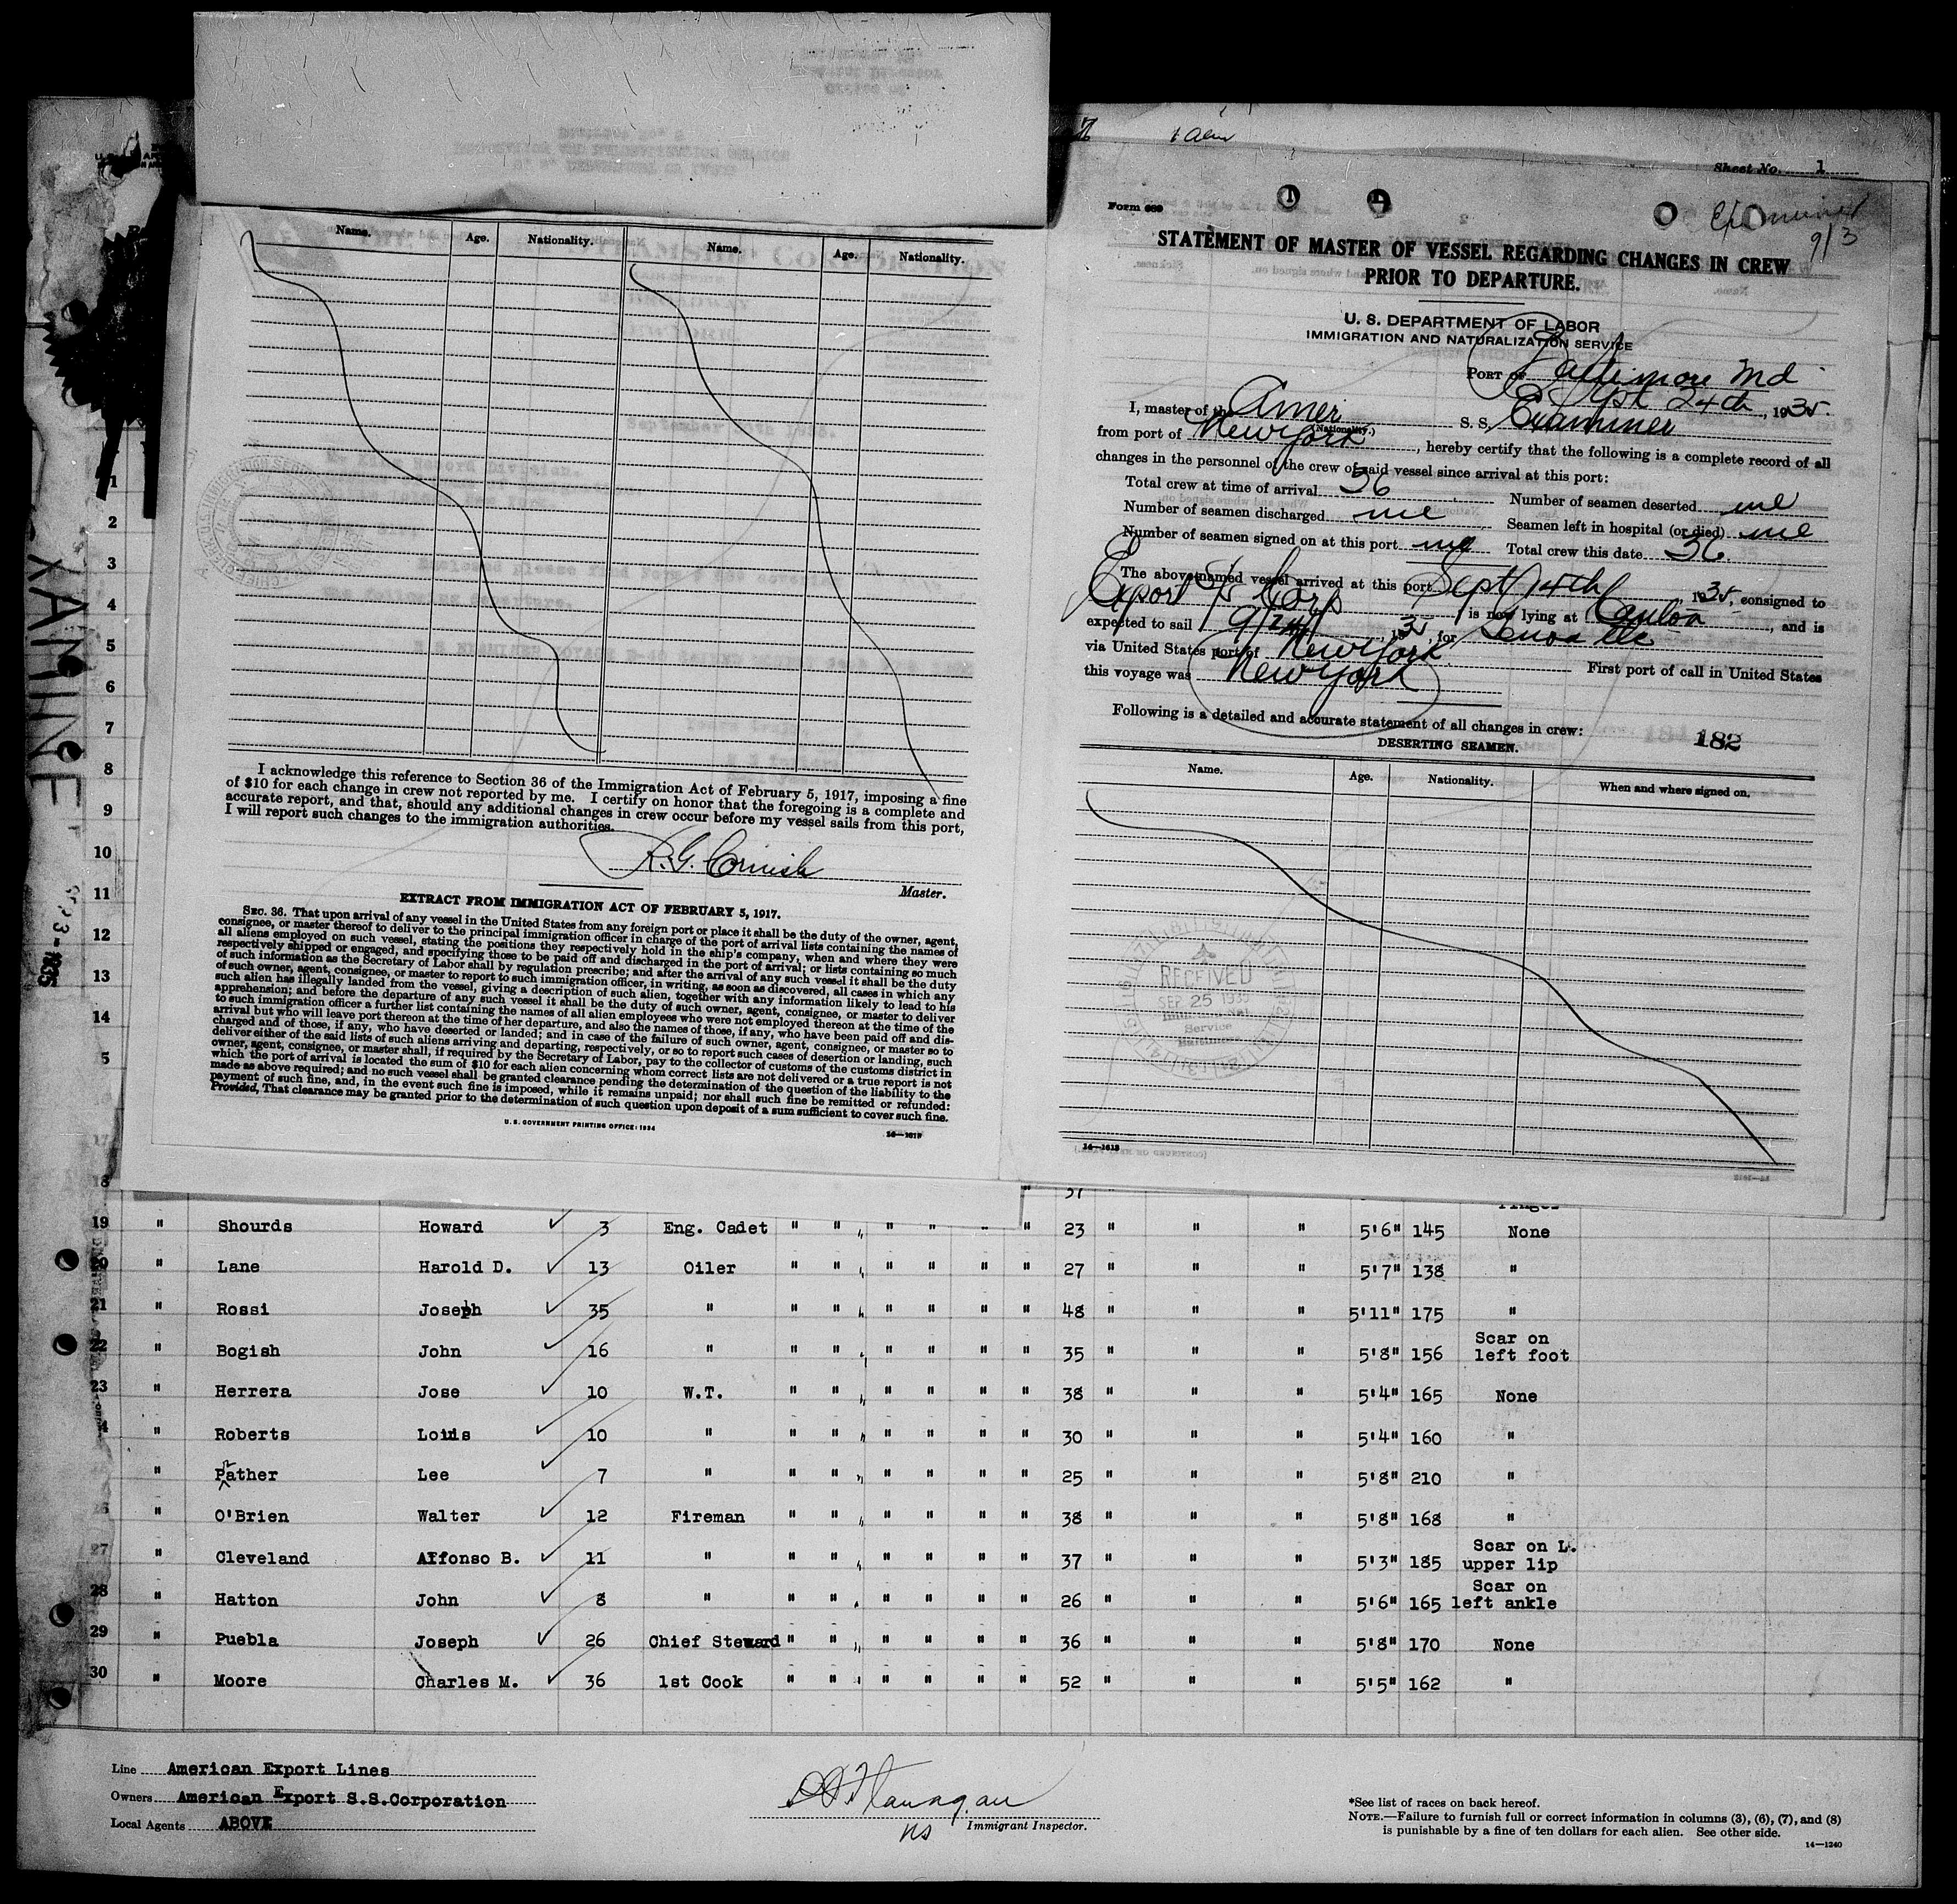 Sheet No. 1
Form 689
STATEMENT OF MASTER OF VESSEL REGARDING CHANGES IN CREW
PRIOR TO DEPARTURE.
9/3
U. S. DEPARTMENT OF LABOR
IMMIGRATION AND NATURALIZATION SERVICE
PORT OF Baltimore Md
Sept 24th, 1935.
I, master of the Amer S. S. Examiner
(Nationality.)
from port of New York, hereby certify that the following is a complete record of all
changes in the personnel of the crew of said vessel since arrival at this port:
Total crew at time of arrival 36 Number of seamen deserted
Number of seamen discharged Seamen left in hospital (or died)
Number of seamen signed on at this port Total crew this date 36.
The above-named vessel arrived at this port Sept 14th, 1935, consigned to
Export S/S Corp is now lying at Canton, and is
expected to sail 9/24, 1935, for Genoa etc
via United States port of New York. First port of call in United States
this voyage was New York
Following is a detailed and accurate statement of all changes in crew:
182
DESERTING SEAMEN.
Name. Age. Nationality. When and where signed on.
RECEIVED
SEP 25 1935
Service
14—1613
Name. Age. Nationality. Name. Age. Nationality.
I acknowledge this reference to Section 36 of the Immigration Act of February 5, 1917, imposing a fine
of $10 for each change in crew not reported by me. I certify on honor that the foregoing is a complete and
accurate report, and that, should any additional changes in crew occur before my vessel sails from this port,
I will report such changes to the immigration authorities.
R. G. Cornish
Master.
EXTRACT FROM IMMIGRATION ACT OF FEBRUARY 5, 1917.
SEC. 36. That upon arrival of any vessel in the United States from any foreign port or place it shall be the duty of the owner, agent,
consignee, or master thereof to deliver to the principal immigration officer in charge of the port of arrival lists containing the names of
all aliens employed on such vessel, stating the positions they respectively hold in the ship's company, when and where they were
respectively shipped or engaged, and specifying those to be paid off and discharged in the port of arrival; or lists containing so much
of such information as the Secretary of Labor shall by regulation prescribe; and after the arrival of any such vessel it shall be the duty
of such owner, agent, consignee, or master to report to such immigration officer, in writing, as soon as discovered, all cases in which any
such alien has illegally landed from the vessel, giving a description of such alien, together with any information likely to lead to his
apprehension; and before the departure of any such vessel it shall be the duty of such owner, agent, consignee, or master to deliver
to such immigration officer a further list containing the names of all alien employees who were not employed thereon at the time of the
arrival but who will leave port thereon at the time of her departure, and also the names of those, if any, who have been paid off and dis-
charged and of those, if any, who have deserted or landed; and in case of the failure of such owner, agent, consignee, or master so to
deliver either of the said lists of such aliens arriving and departing, respectively, or so to report such cases of desertion or landing, such
owner, agent, consignee, or master shall, if required by the Secretary of Labor, pay to the collector of customs of the customs district in
which the port of arrival is located the sum of $10 for each alien concerning whom correct lists are not delivered or a true report is not
made as above required; and no such vessel shall be granted clearance pending the determination of the question of the liability to the
payment of such fine, and, in the event such fine is imposed, while it remains unpaid; nor shall such fine be remitted or refunded:
Provided, That clearance may be granted prior to the determination of such question upon deposit of a sum sufficient to cover such fine.
U. S. GOVERNMENT PRINTING OFFICE: 1934
1
2
3
4
5
6
7
8
9
10
11
12
13
14
5
17
18 37
19 " Shourds Howard 3 Eng. Cadet " " " " " " " 23 " " " 5'6" 145 None
20 " Lane Harold D. 13 Oiler " " " " " " " 27 " " " 5'7" 138 "
21 " Rossi Joseph 35 " " " " " " " " 48 " " " 5'11" 175 "
22 " Bogish John 16 " " " " " " " " 35 " " " 5'8" 156 Scar on
left foot
23 " Herrera Jose 10 W.T. " " " " " " " 38 " " " 5'4" 165 None
4 " Roberts Louis 10 " " " " " " " " 30 " " " 5'4" 160 "
" Prather Lee 7 " " " " " " " " 25 " " " 5'8" 210 "
26 " O'Brien Walter 12 Fireman " " " " " " " 38 " " " 5'8" 168 "
27 " Cleveland Alfonso B. 11 " " " " " " " " 37 " " " 5'3" 185 Scar on L.
upper lip
28 " Hatton John 8 " " " " " " " " 26 " " " 5'6" 165 Scar on
left ankle
29 " Puebla Joseph 26 Chief Steward " " " " " " " 36 " " " 5'8" 170 None
30 " Moore Charles M. 36 1st Cook " " " " " " " 52 " " " 5'5" 162 "
Line American Export Lines
Owners American Export S.S.Corporation
Local Agents ABOVE
Flanagan
Immigrant Inspector.
*See list of races on back hereof.
NOTE.—Failure to furnish full or correct information in columns (3), (6), (7), and (8)
is punishable by a fine of ten dollars for each alien. See other side.
14—1240